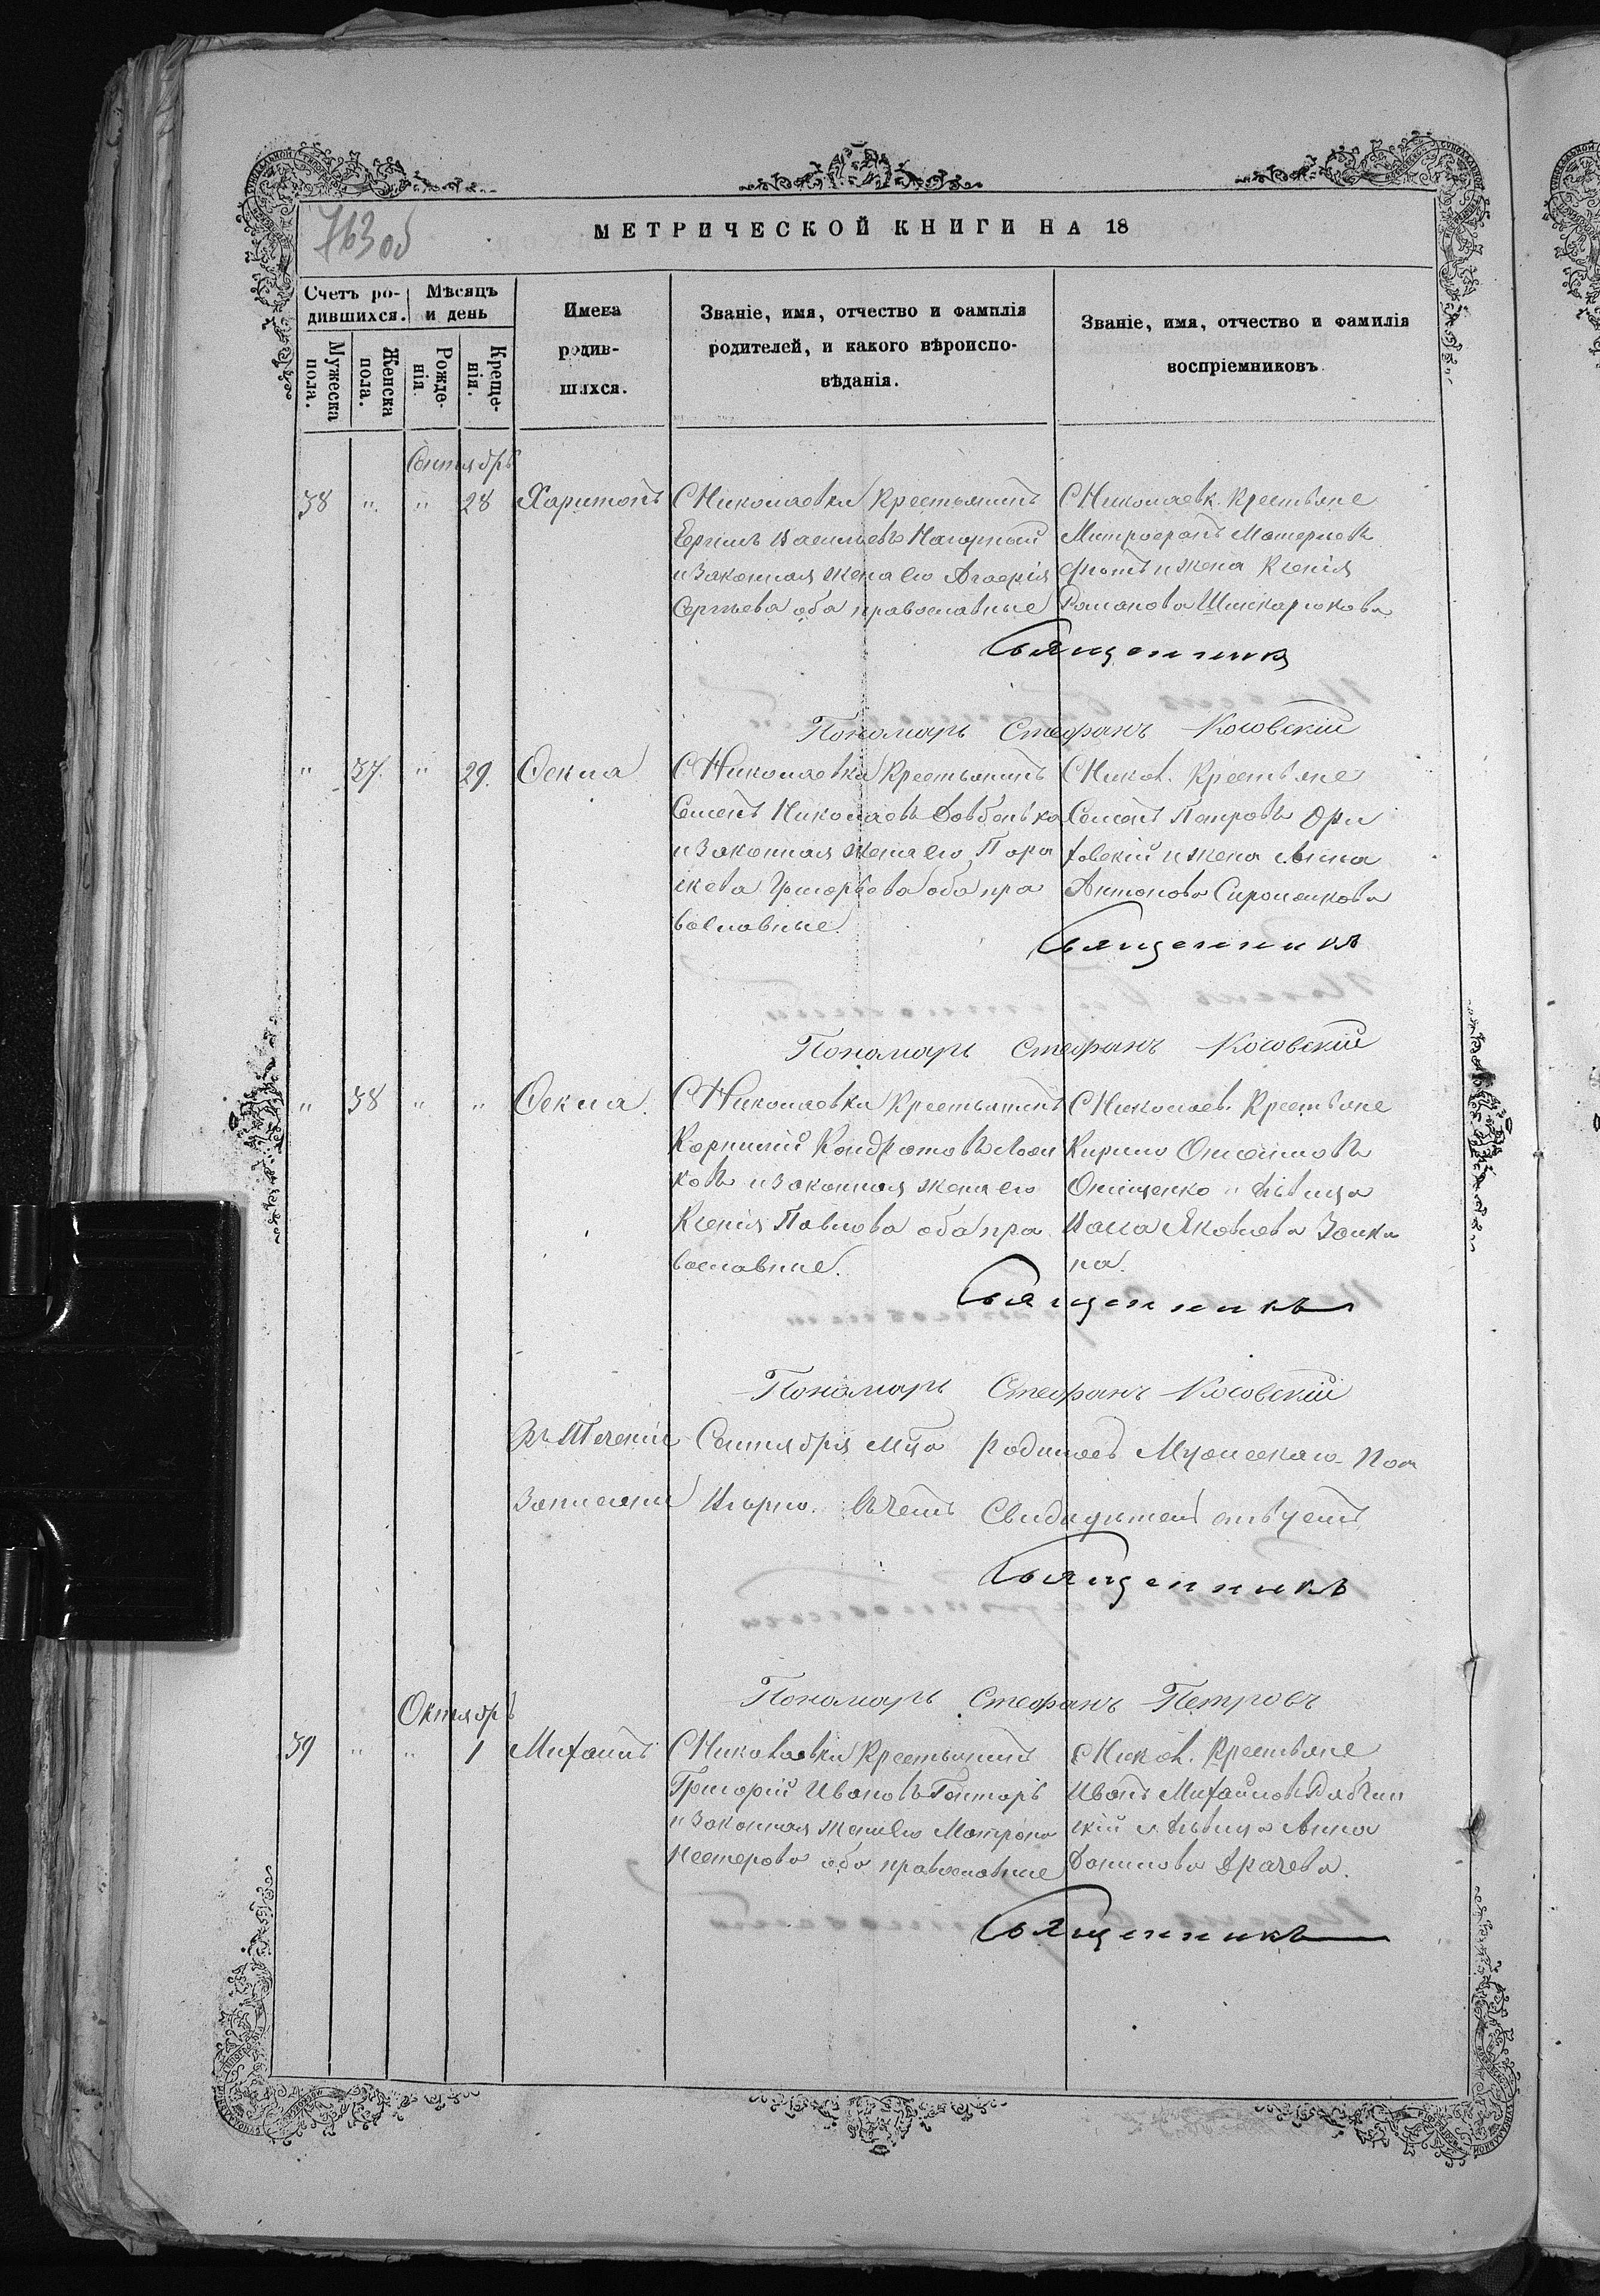 763 об
МЕТРИЧЕСКОЙ КНИГИ НА 18
Счетъ ро-
дившихся.
Мужеска пола.
Женска пола.
Мѣсяцъ
и день
Рожде-
нія.
Креще-
нія.
Имена
родив-
шихся.
Званіе, имя, отчество и фамилія
родителей, и какого вѣроиспо-
вѣданія.
Званіе, имя, отчество и фамилія
воспріемниковъ.
Сентябрь
38 " " 28 Харитонъ
С Николаевки Крестьянинъ
Васильевъ Нагорный
и законная жена его Агафія
Сергѣева оба православные
С Николаевк. Крестьяне
Митрофанъ
и жена Ксенія
Романова
Священникъ
Пономарь Стефанъ Косовскій
" 37. " 29. Фекла
С Николаевки Крестьянинъ
Семенъ Николаевъ Довбенька
и законная жена его Пара
скева Григорьева оба пра
вославные.
С Никол. Крестьяне
Семенъ Петровъ Орли
ховскій и жена Анна
Антонова
Священникъ
Пономарь Стефанъ Косовскій
" 38 " " Фекла.
С Николаевки Крестьянинъ
Корнилій Кондратовъ
ковъ и законная жена его
Ксенія Павлова оба пра
вославные.
С Николаев. Крестьяне
Кирило Онисимовъ
Онищенко и дѣвица
Яковлева Заики
на.
Священникъ
Пономарь Стефанъ Косовскій
Въ теченіи Сентября мѣца родилось Мужескаго пола
Записаны вѣрно. Въ чемъ
Священникъ
Пономарь Стефанъ Петровъ
Октябрь
39 " " 1 Михаилъ
С Николаевки Крестьянинъ
Григорій Ивановъ Гонтарь
и законная жена его Матрона
Нестерова оба православные
С Никол. Крестьяне
Иванъ Михайловъ Рабчин
скій и дѣвица Анна
Данилова Драчева.
Священникъ